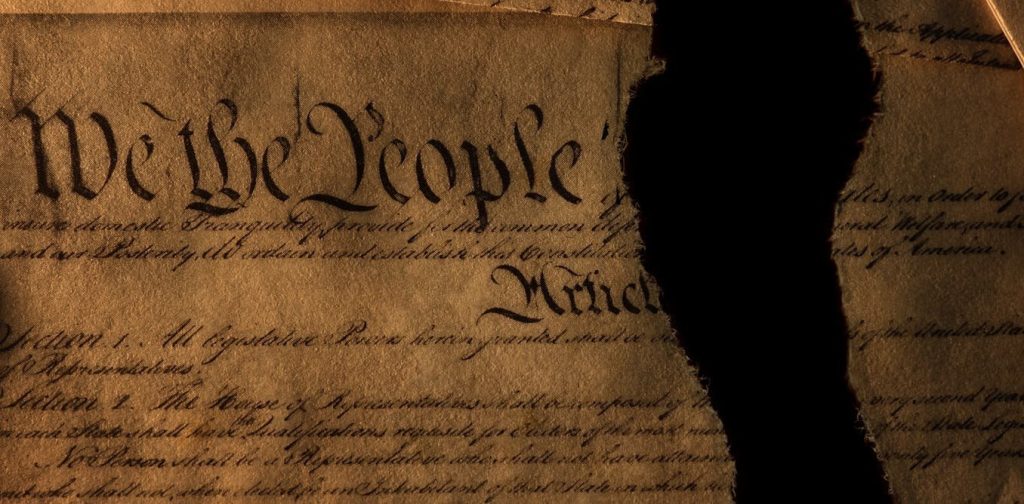 the Applicati
We the People
in Order to
insure domestic Tranquility, provide for the common Defe Welfare, and
and our Posterity, do ordain and establish this Constitu tes of America.
Articl
Section. 1. All legislative Powers herein granted shall be of the United Sta
of Representatives.
Section. 2. The House of Representatives shall be composed of very second Year
in each State shall have Qualifications requisite for Electors of the most nu of the State Legis
No Person shall be a Representative who shall not have attaine Years
and who shall not, when elected, be an Inhabitant of that State in which